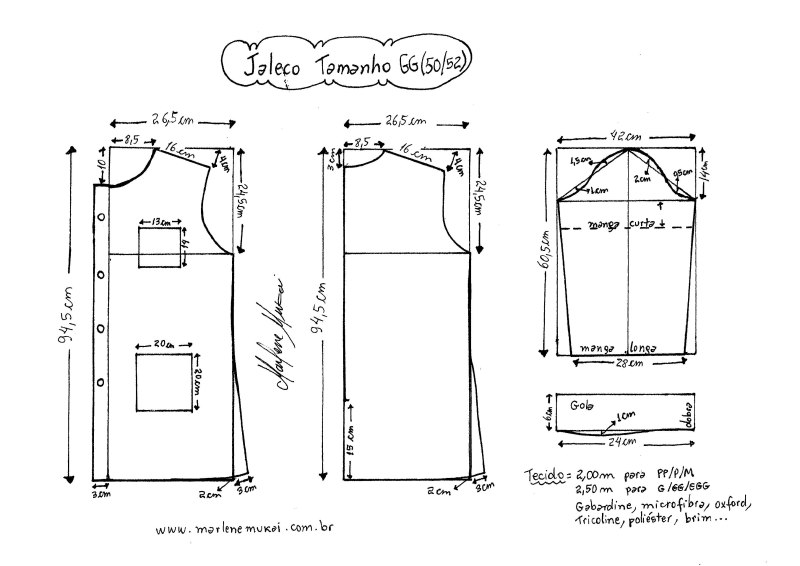 Jaleco Tamanho GG(50/52)
26,5cm
8,5
16cm
4cm
10
24,5cm
13cm
14
94,5cm
20cm
20cm
3cm
2cm
3cm
Marlene Mukai
26,5cm
8,5
16cm
4cm
3cm
24,5cm
94,5cm
15cm
2cm
3cm
42cm
1,5cm
2cm
0,5cm
1cm
14cm
manga curta
60,5cm
manga longa
28cm
Gola
6cm
dobra
1cm
24cm
Tecido = 2,00m para PP/P/M
2,50m para G/GG/EGG
Gabardine, microfibra, oxford,
Tricoline, poliéster, brim...
www.marlenemukai.com.br